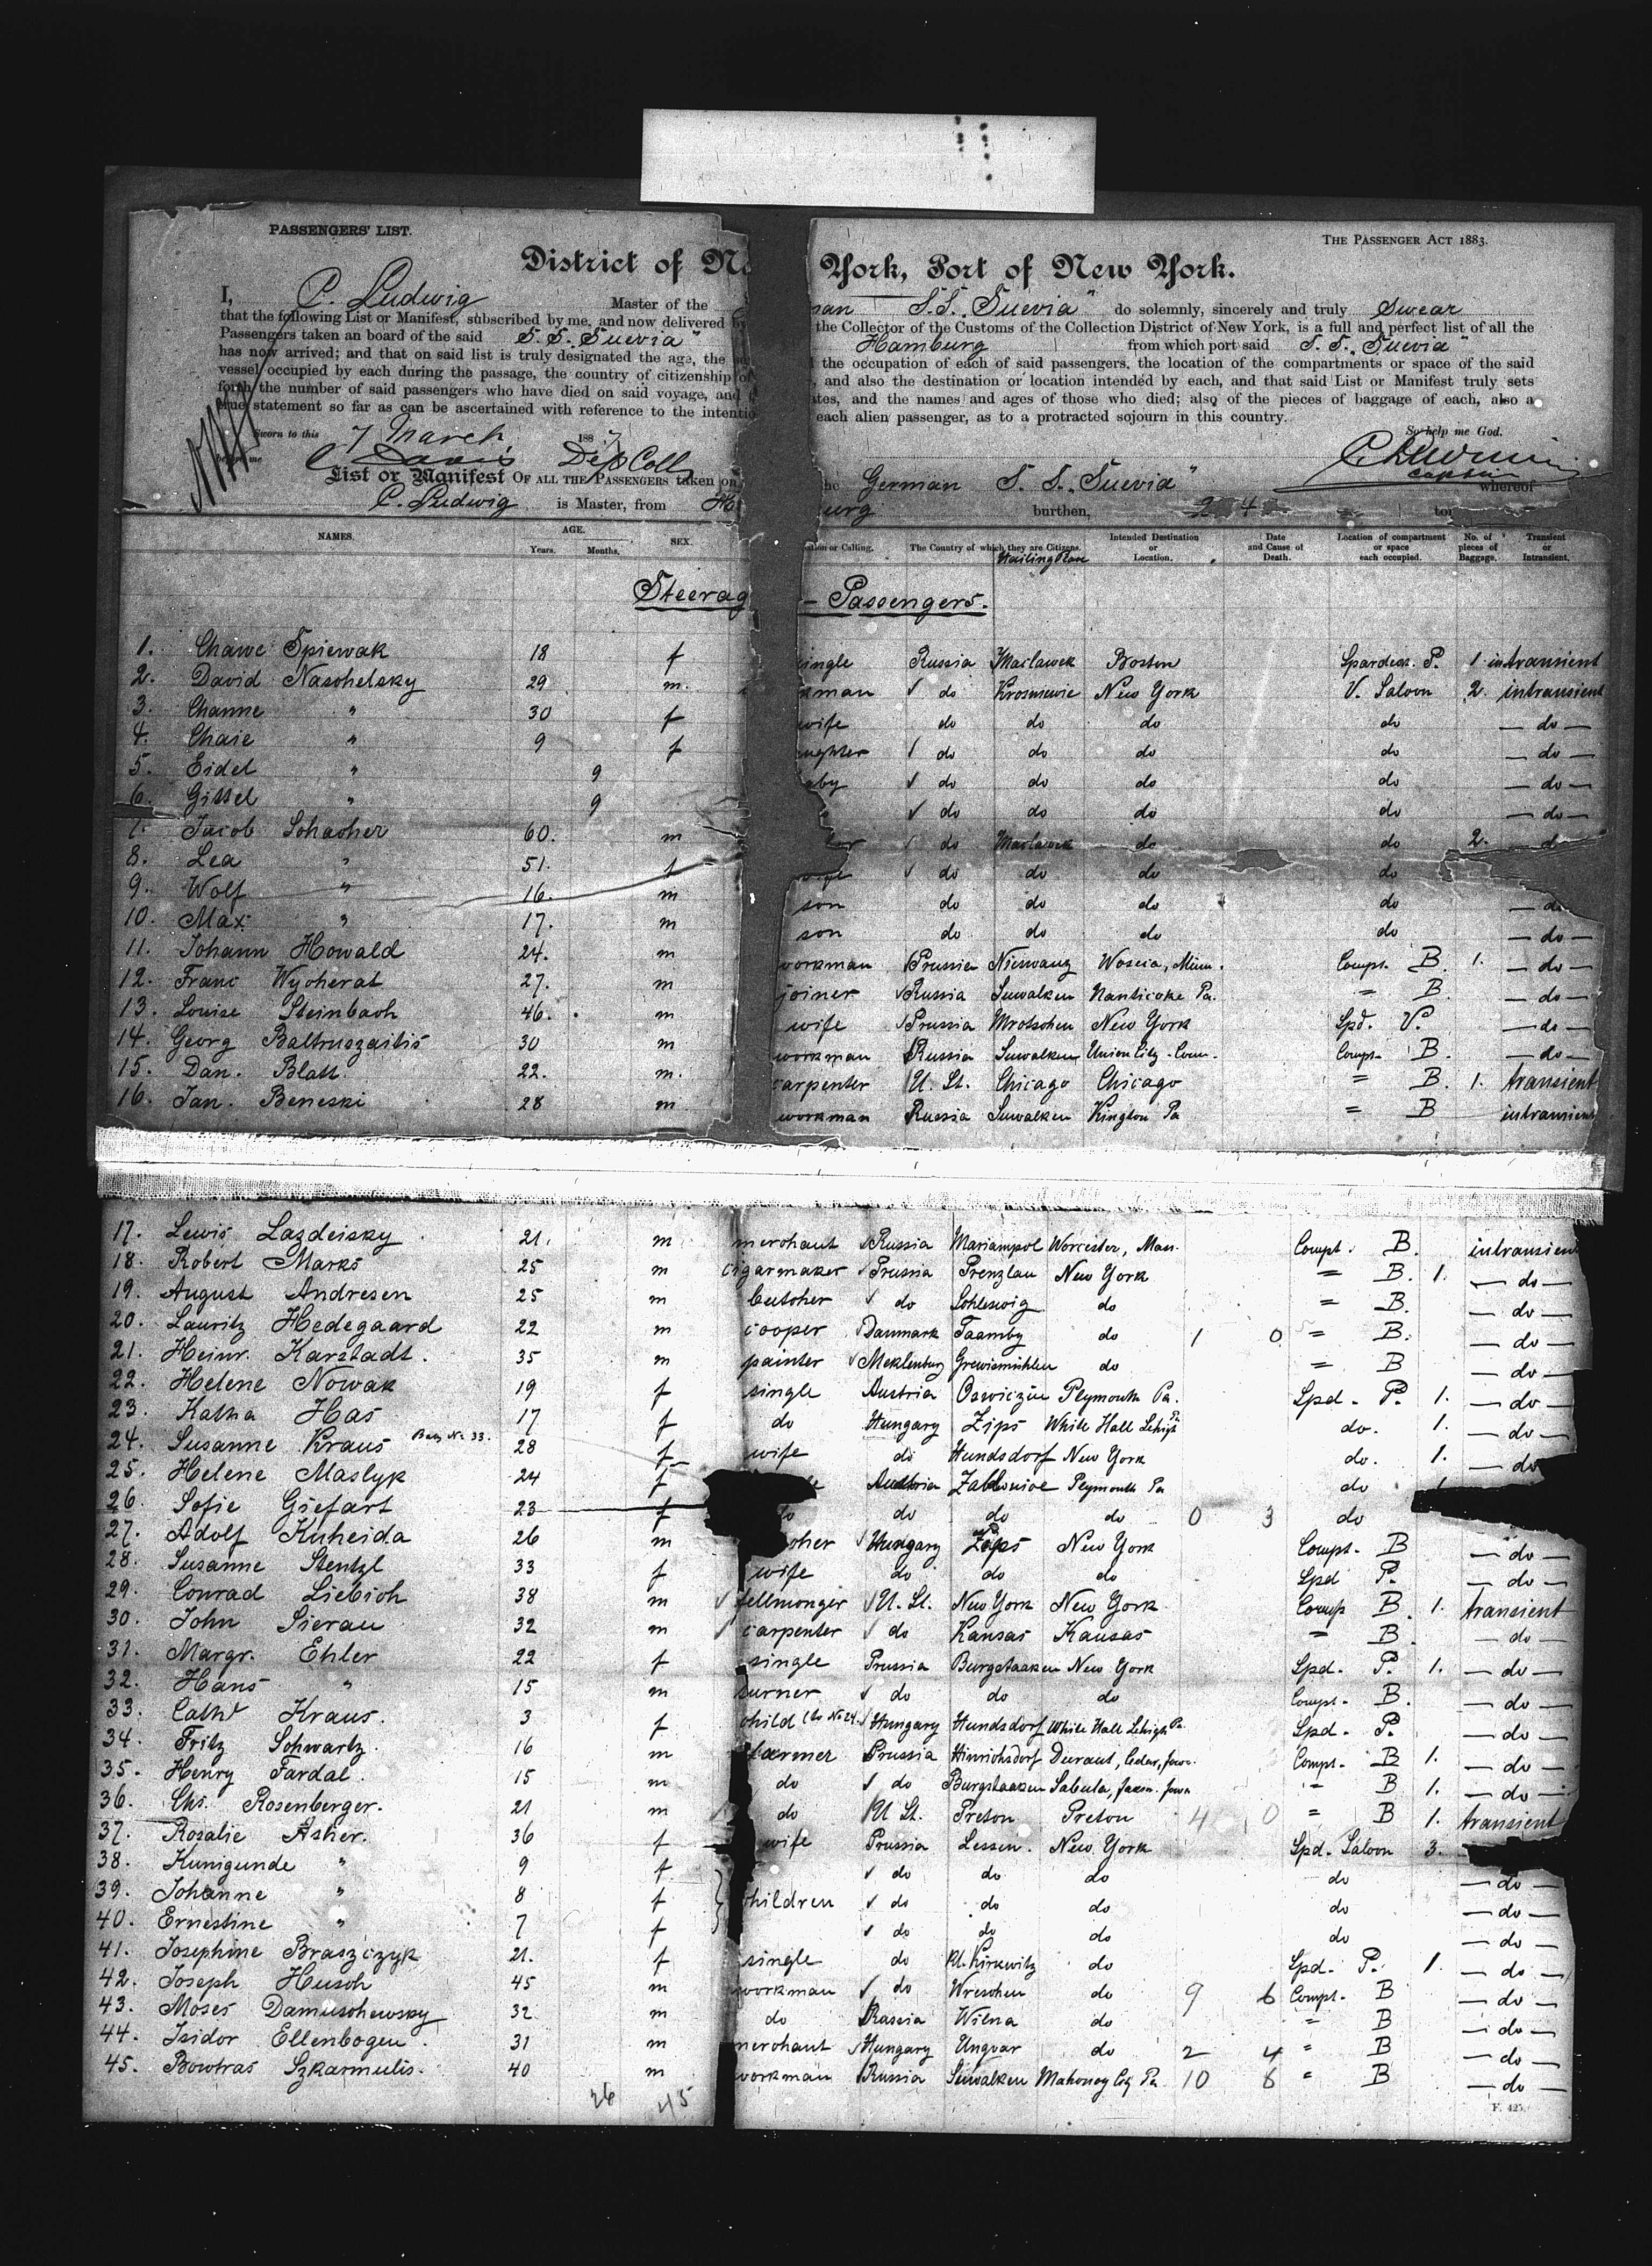 PASSENGERS' LIST. THE PASSENGER ACT 1883.
District of Ne York, Port of New York.
I, C. Ludwig Master of the man S.S. „Suevia" do solemnly, sincerely and truly swear
that the following List or Manifest, subscribed by me, and now delivered by the Collector of the Customs of the Collection District of New York, is a full and perfect list of all the
Passengers taken on board of the said S.S. „Suevia" Hamburg from which port said S.S. „Suevia"
has now arrived; and that on said list is truly designated the age, the the occupation of each of said passengers, the location of the compartments or space of the said
vessel occupied by each during the passage, the country of citizenship of , and also the destination or location intended by each, and that said List or Manifest truly sets
forth the number of said passengers who have died on said voyage, and ates, and the names and ages of those who died; also of the pieces of baggage of each, also a
true statement so far as can be ascertained with reference to the intentio each alien passenger, as to a protracted sojourn in this country.
Sworn to this 7 March 1887 So help me God.
before me C Davis Dep Coll
List or Manifest OF ALL THE PASSENGERS taken on the German S.S. „Suevia" Captn whereof
C. Ludwig is Master, from Ha urg burthen, 2 4 ton
NAMES. AGE. SEX. ation or Calling. The Country of which they are Citizens. Intended Destination or Location. Date and Cause of Death. Location of compartment or space each occupied. No. of pieces of Baggage. Transient or Intransient.
Years. Months. Hailing Place
Steerag - Passengers.
1. Chawe Spiewak 18 f ingle Russia Maclawek Boston Spardeck. P. 1 intransient
2. David Naschelsky 29 m. kman do Krosniewie New York V. Saloon 2. intransient
3. Channe " 30 f wife do do do do — do —
4. Chaie " 9 f aughter do do do do — do —
5. Eidel " 9 aby do do do do — do —
6. Gittel " 9 do do do do — do —
7. Jacob Schacher 60. m or do Maclawek do do 2. — d
8. Lea " 51. f wife do do do do
9. Wolf " 16. m son do do do do — do
10. Max " 17. m son do do do do — do —
11. Johann Howald 24. m workman Prussia Nieswanz Woseia, Minn. Compt. B. 1. — do —
12. Franc Wycherat 27. m joiner Russia Suwalken Nanticoke Pa. = B. — do —
13. Louise Steinbach 46. m wife Prussia Mrotschen New York Spd. V. — do —
14. Georg Baltruszaitis 30 m workman Russia Suwalken Union City - Conn. Compt. B. — do —
15. Dan. Blatt. 22. m. carpenter U. St. Chicago Chicago = B. 1. transient
16. Jan. Beneski 28 m workman Russia Suwalken Kington Pa = B intransient
17. Lewis Lazdeisky 21. m merchant Russia Mariampol Worcester, Mass. Compt. B. intransien
18. Robert Marks 25 m cigarmaker Prussia Prenzlau New York = B. 1. — do —
19. August Andresen 25 m butcher do Schleswig do = B. — do —
20. Lauritz Hedegaard 22 m cooper Danmark Taamby do 1 0 = B. — do —
21. Heinr. Karstadt. 35 m painter Meklenburg Grewismühlen do = B — do —
22. Helene Nowak 19 f single Austria Oswiczin Plymouth Pa. Spd. P. 1. — do —
23. Katha Has 17 f do Hungary Zips White Hall Lehigh Pa do. 1. — do —
24. Susanne Kraus Baby No 33. 28 f wife do Hundsdorf New York do. 1. — do
25. Helene Maslyk 24 f e Austria Plymouth Pa do 1
26. Sofie Giefart 23 f do do do do 0 3 do
27. Adolf Kuheida 26 m cher Hungary Zips New York Compt. B — do —
28. Susanne Stentzl 33 f wife do do do Spd P. — do —
29. Conrad Liebich 38 m fellmonger U. St. New York New York Comp B. 1. transient
30. John Sierau 32 m carpenter do Kansas Kansas = B. — do —
31. Margr. Ehler 22 f single Prussia Burgstaaken New York Spd. P. 1. — do —
32. Hans " 15 m turner do do do Compt. B. — do —
33. Cathe Kraus. 3 f child (to No 24.) Hungary Hundsdorf White Hall Lehigh Pa. Spd. P. — do —
34. Fritz Schwartz. 16 m farmer Prussia Hinrichsdorf Durant, Cedar, Iowa. Compt. B 1. — do —
35. Henry Fardal. 15 m do do Burgstaaken Sabula, Jacson. Iowa = B 1. — do —
36. Chs. Rosenberger. 21 m do U St. Preton Preton 4 0 = B 1. transient
37. Rosalie Asher. 36 f wife Prussia Lessen. New York Spd. Saloon 3.
38. Kunigunde " 9 f do do do do — do —
39. Johanne " 8 f children do do do do — do —
40. Ernestine " 7 f do do do do — do —
41. Josephine Braszczyk 21. f single do Kl. Kirkwitz do Spd. P. 1. — do —
42. Joseph Husch 45 m workman do Wreschen do 9 6 Compt. B — do —
43. Moses Damuschewsky 32 m do Russia Wilna do = B — do —
44. Isidor Ellenbogen. 31 m merchant Hungary Ungvar do 2 4 " B — do —
45. Bowtras Szkarmulis. 40 m workman Russia Suwalken Mahonoy City Pa 10 6 " B — do —
26 45
F. 425.